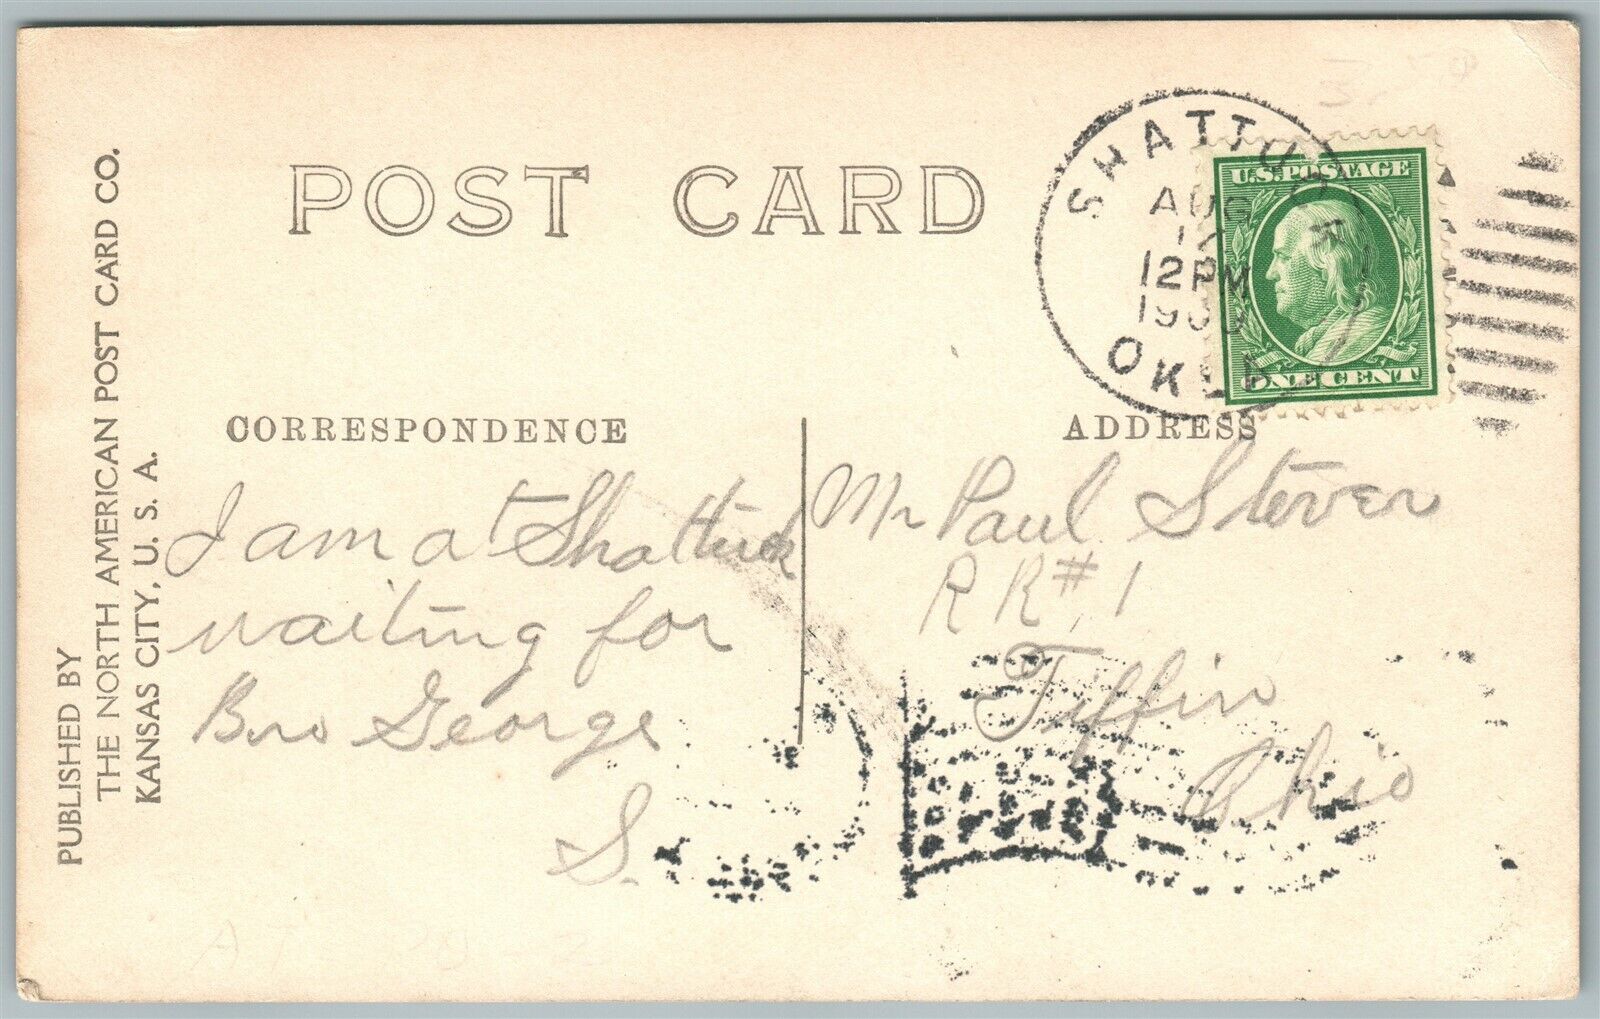 PUBLISHED BY
THE NORTH AMERICAN POST CARD CO.
KANSAS CITY, U. S. A.
POST CARD
SHATTUCK
AUG
12 PM
1909
OKLA
U.S. POSTAGE
ONE CENT
CORRESPONDENCE
I am at Shattuck
waiting for
Bro George
S.
ADDRESS
Mr Paul Stover
R R #1
Tiffin
Ohio